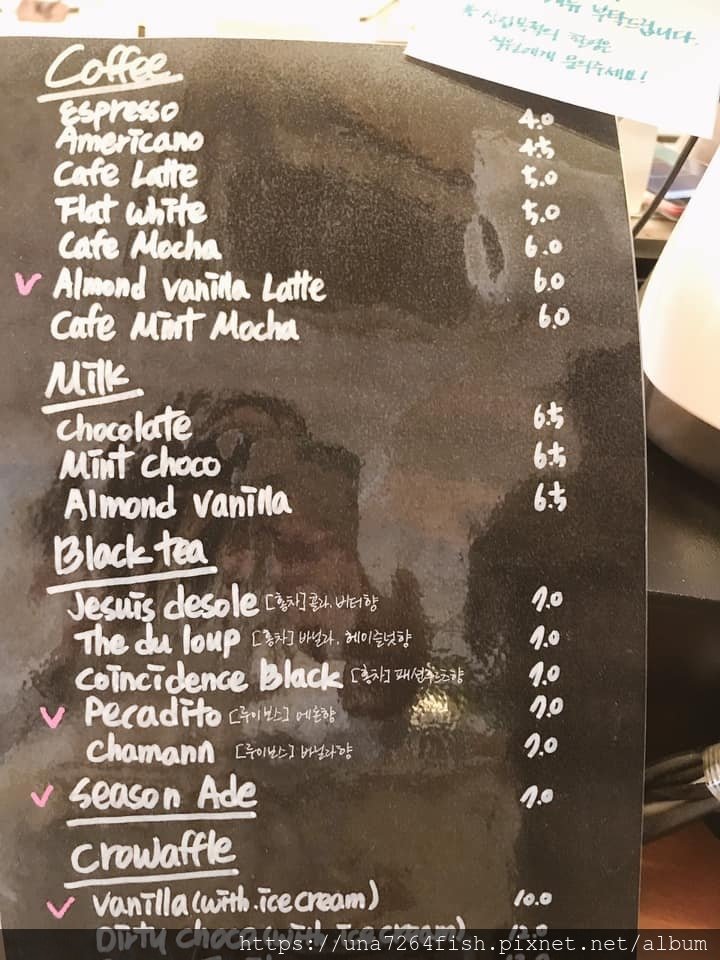 부탁드립니다.
직원에게 물어주세요!
Coffee
Espresso 4.0
Americano 4.5
Cafe Latte 5.0
Flat White 5.0
Cafe Mocha 6.0
Almond vanilla Latte 6.0
Cafe Mint Mocha 6.0
Milk
Chocolate 6.5
Mint choco 6.5
Almond vanilla 6.5
Black tea
Jesuis desole [홍차] 콜라, 버터향 7.0
The du loup [홍차] 바닐라, 헤이즐넛향 7.0
Coincidence Black [홍차] 패션후르츠향 7.0
Pecadito [루이보스] 레몬향 7.0
Chamann [루이보스] 바닐라향 7.0
Season Ade 7.0
Crowaffle
Vanilla (with.ice cream) 10.0
Dirty choco (with ice cream)
https://una7264fish.pixnet.net/album